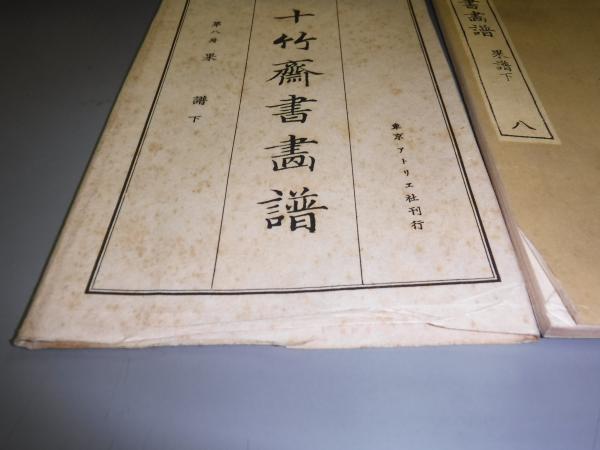 東京・アトリヱ社刊行
十竹齋書畵譜
第八卷 果譜 下
書畵譜 果譜下
八